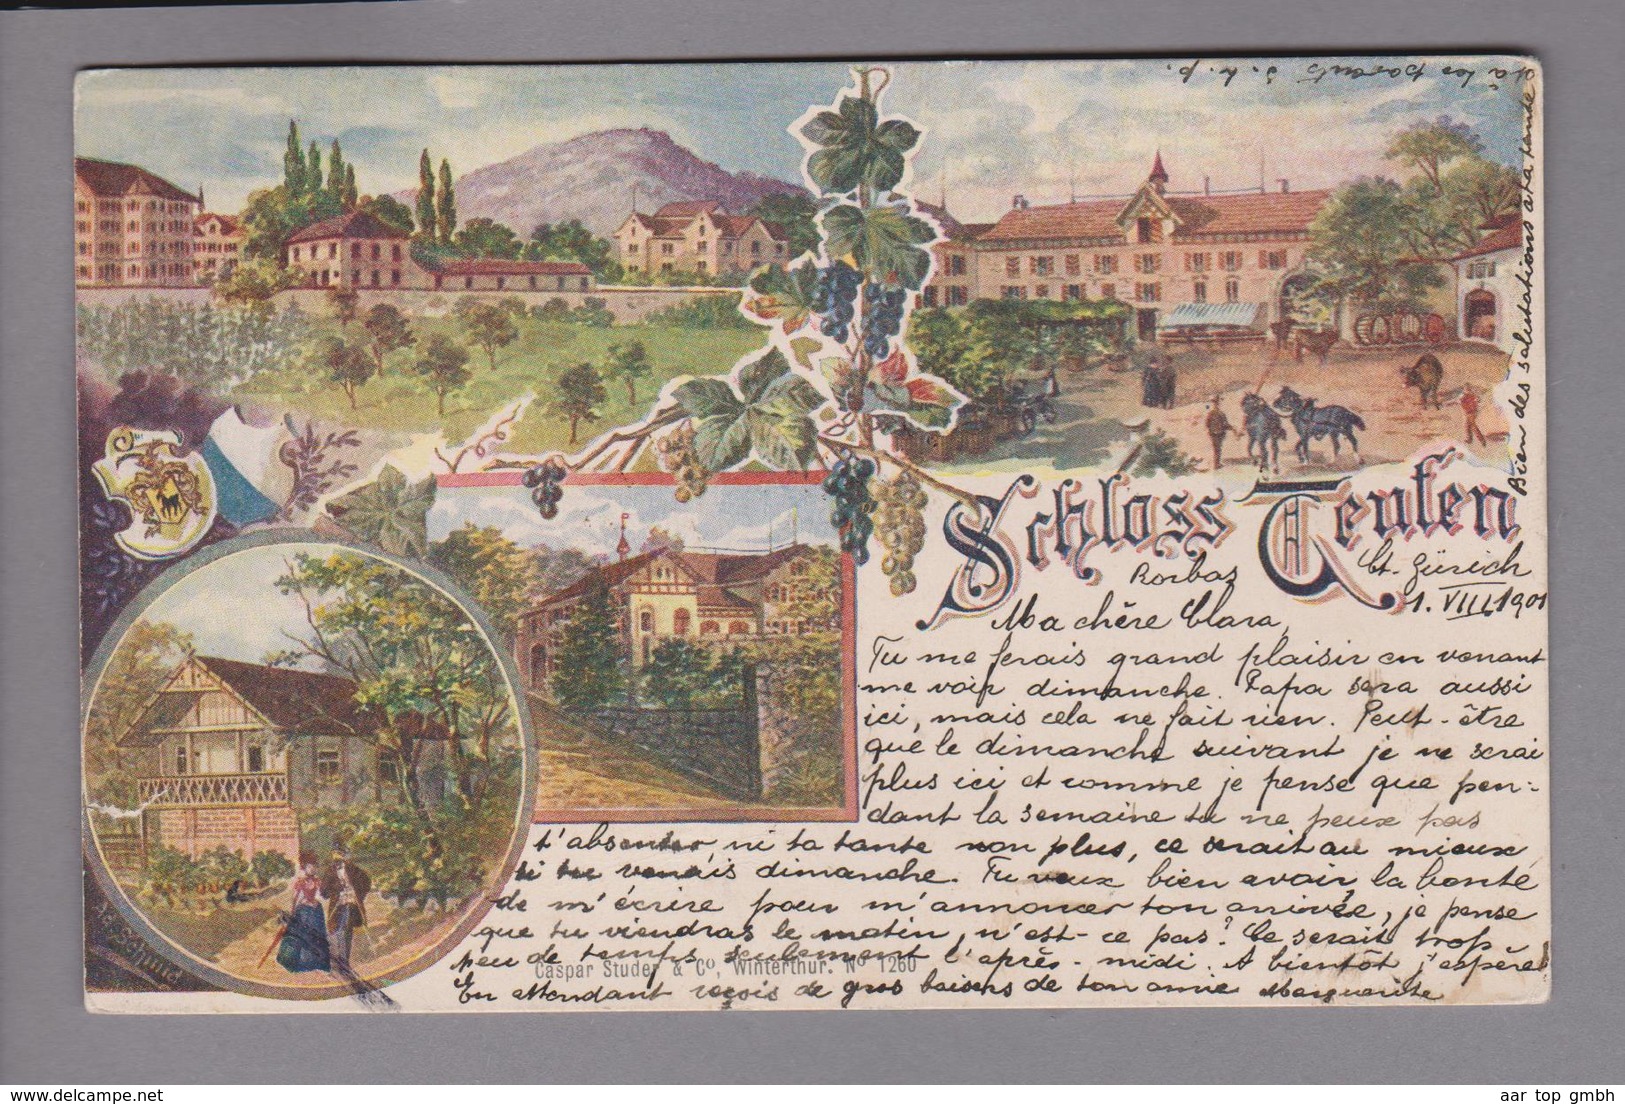 à tes parents s. t. p.
Bien des salutations à ta tante
Schloss Teufen
Rorbas Ct. Zürich
1. VIII 1901
Ma chère Clara,
Tu me ferais grand plaisir en venant
me voir dimanche. Papa sera aussi
ici, mais cela ne fait rien. Peut-être
que le dimanche suivant je ne serai
plus ici et comme je pense que pen-
dant la semaine tu ne peux pas
t'absenter, ni ta tante non plus, ce serait au mieux
si tu venais dimanche. Tu veux bien avoir la bonté
de m'écrire pour m'annoncer ton arrivée, je pense
que tu viendras le matin, n'est-ce pas? Ce serait trop
peu de temps seulement l'après-midi. A bientôt j'espère!
Caspar Studer & Co, Winterthur. No 1260
En attendant reçois de gros baisers de ton amie Marguerite
aar top gmbh / www.delcampe.net